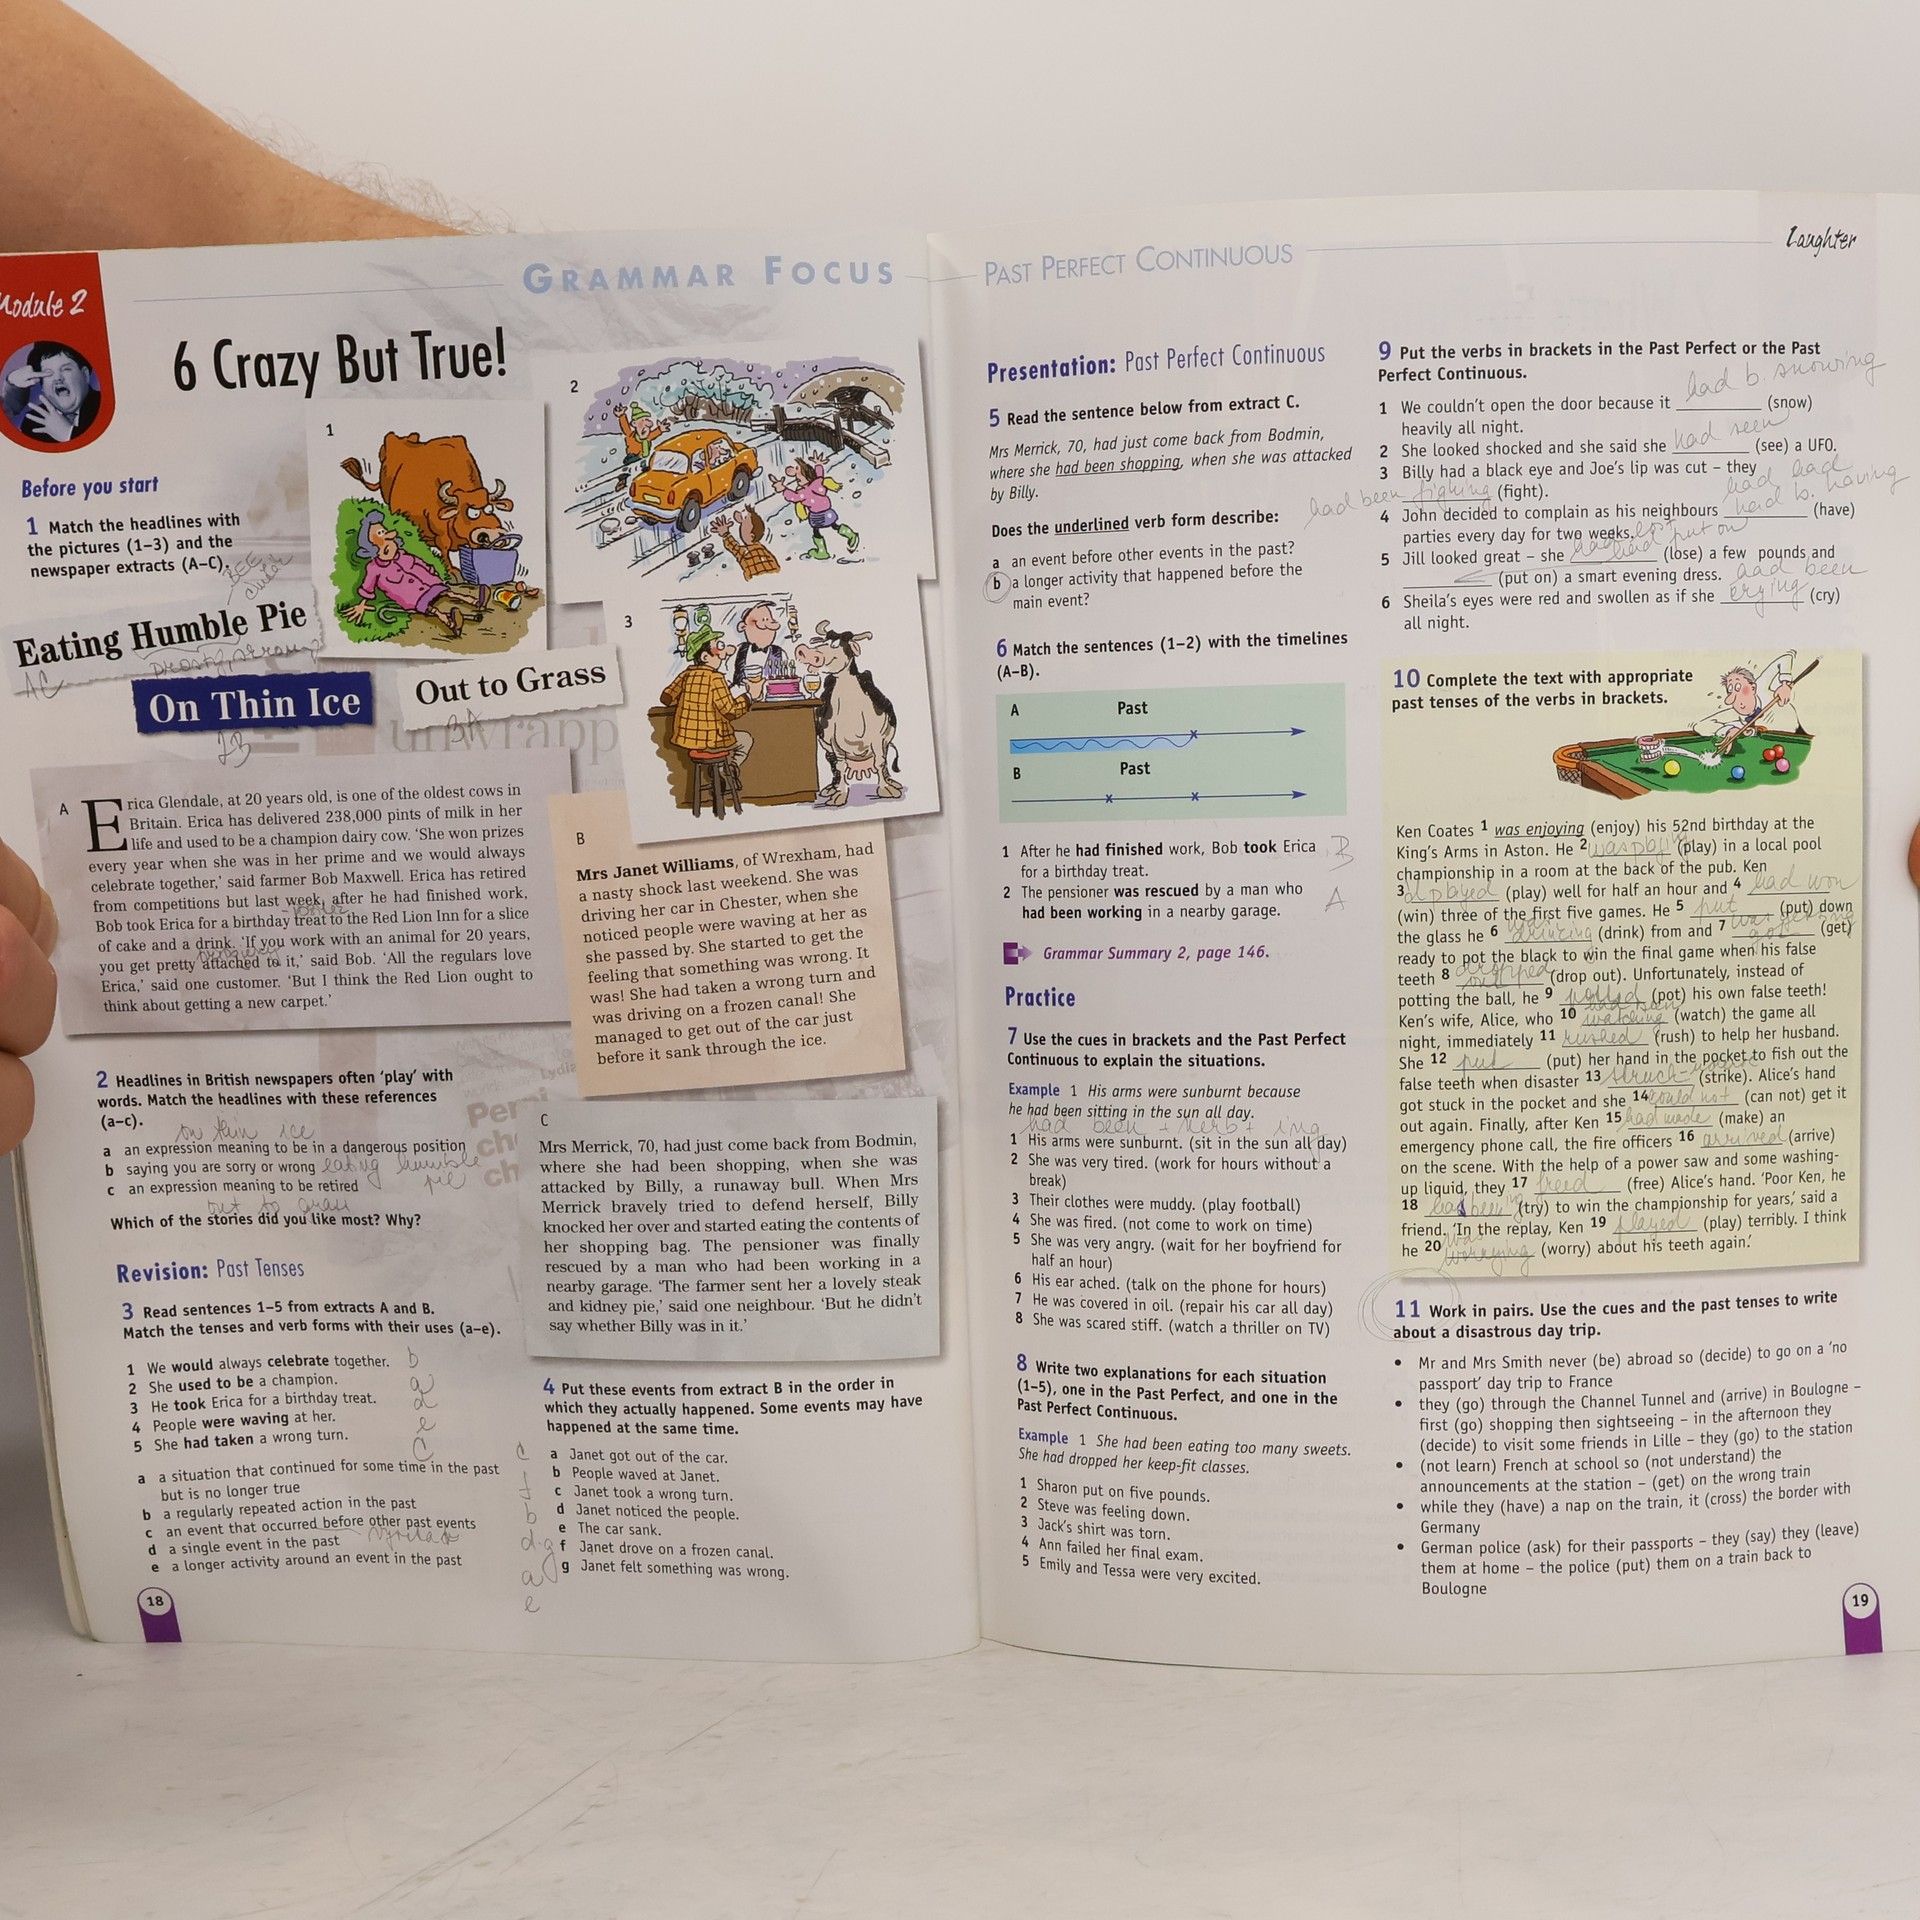 Module 2
GRAMMAR FOCUS
6 Crazy But True!
1
2
3
Before you start
1 Match the headlines with
the pictures (1–3) and the
newspaper extracts (A–C).
Eating Humble Pie
AC
On Thin Ice
2B
Out to Grass
3A
A
Erica Glendale, at 20 years old, is one of the oldest cows in
Britain. Erica has delivered 238,000 pints of milk in her
life and used to be a champion dairy cow. ‘She won prizes
every year when she was in her prime and we would always
celebrate together,’ said farmer Bob Maxwell. Erica has retired
from competitions but last week, after he had finished work,
Bob took Erica for a birthday treat to the Red Lion Inn for a slice
of cake and a drink. ‘If you work with an animal for 20 years,
you get pretty attached to it,’ said Bob. ‘All the regulars love
Erica,’ said one customer. ‘But I think the Red Lion ought to
think about getting a new carpet.’
B
Mrs Janet Williams, of Wrexham, had
a nasty shock last weekend. She was
driving her car in Chester, when she
noticed people were waving at her as
she passed by. She started to get the
feeling that something was wrong. It
was! She had taken a wrong turn and
was driving on a frozen canal! She
managed to get out of the car just
before it sank through the ice.
2 Headlines in British newspapers often ‘play’ with
words. Match the headlines with these references
(a–c).
on thin ice
a an expression meaning to be in a dangerous position
b saying you are sorry or wrong eating humble
pie
c an expression meaning to be retired
out to grass
Which of the stories did you like most? Why?
C
Mrs Merrick, 70, had just come back from Bodmin,
where she had been shopping, when she was
attacked by Billy, a runaway bull. When Mrs
Merrick bravely tried to defend herself, Billy
knocked her over and started eating the contents of
her shopping bag. The pensioner was finally
rescued by a man who had been working in a
nearby garage. ‘The farmer sent her a lovely steak
and kidney pie,’ said one neighbour. ‘But he didn’t
say whether Billy was in it.’
Revision: Past Tenses
3 Read sentences 1–5 from extracts A and B.
Match the tenses and verb forms with their uses (a–e).
1 We would always celebrate together. b
2 She used to be a champion. a
3 He took Erica for a birthday treat. d
4 People were waving at her. e
5 She had taken a wrong turn. C
a a situation that continued for some time in the past
but is no longer true
b a regularly repeated action in the past
c an event that occurred before other past events
d a single event in the past
e a longer activity around an event in the past
4 Put these events from extract B in the order in
which they actually happened. Some events may have
happened at the same time.
c a Janet got out of the car.
f b People waved at Janet.
c Janet took a wrong turn.
b d Janet noticed the people.
e The car sank.
d g f Janet drove on a frozen canal.
a g Janet felt something was wrong.
e
18
PAST PERFECT CONTINUOUS
Laughter
Presentation: Past Perfect Continuous
5 Read the sentence below from extract C.
Mrs Merrick, 70, had just come back from Bodmin,
where she had been shopping, when she was attacked
by Billy.
Does the underlined verb form describe:
a an event before other events in the past?
b a longer activity that happened before the
main event?
6 Match the sentences (1–2) with the timelines
(A–B).
A Past
B Past
1 After he had finished work, Bob took Erica B
for a birthday treat.
2 The pensioner was rescued by a man who A
had been working in a nearby garage.
Grammar Summary 2, page 146.
Practice
7 Use the cues in brackets and the Past Perfect
Continuous to explain the situations.
Example 1 His arms were sunburnt because
he had been sitting in the sun all day.
had been + verb + ing
1 His arms were sunburnt. (sit in the sun all day)
2 She was very tired. (work for hours without a
break)
3 Their clothes were muddy. (play football)
4 She was fired. (not come to work on time)
5 She was very angry. (wait for her boyfriend for
half an hour)
6 His ear ached. (talk on the phone for hours)
7 He was covered in oil. (repair his car all day)
8 She was scared stiff. (watch a thriller on TV)
8 Write two explanations for each situation
(1–5), one in the Past Perfect, and one in the
Past Perfect Continuous.
Example 1 She had been eating too many sweets.
She had dropped her keep-fit classes.
1 Sharon put on five pounds.
2 Steve was feeling down.
3 Jack’s shirt was torn.
4 Ann failed her final exam.
5 Emily and Tessa were very excited.
9 Put the verbs in brackets in the Past Perfect or the Past
Perfect Continuous.
had b. snowing
1 We couldn’t open the door because it (snow)
heavily all night.
2 She looked shocked and she said she had seen (see) a UFO.
3 Billy had a black eye and Joe’s lip was cut – they
had been fighing (fight).
had b. having
4 John decided to complain as his neighbours (have)
parties every day for two weeks.
had put on
5 Jill looked great – she (lose) a few pounds and
(put on) a smart evening dress.
had been
6 Sheila’s eyes were red and swollen as if she crying (cry)
all night.
10 Complete the text with appropriate
past tenses of the verbs in brackets.
Ken Coates 1 was enjoying (enjoy) his 52nd birthday at the
King’s Arms in Aston. He 2 was playing (play) in a local pool
championship in a room at the back of the pub. Ken
3 played (play) well for half an hour and 4 had won
(win) three of the first five games. He 5 put (put) down
the glass he 6 drincing (drink) from and 7 got (get)
ready to pot the black to win the final game when his false
teeth 8 dropped out (drop out). Unfortunately, instead of
potting the ball, he 9 (pot) his own false teeth!
Ken’s wife, Alice, who 10 watching (watch) the game all
night, immediately 11 rushed (rush) to help her husband.
She 12 put (put) her hand in the pocket to fish out the
false teeth when disaster 13 struck (strike). Alice’s hand
got stuck in the pocket and she 14 could not (can not) get it
out again. Finally, after Ken 15 had made (make) an
emergency phone call, the fire officers 16 arrived (arrive)
on the scene. With the help of a power saw and some washing-
up liquid, they 17 freed (free) Alice’s hand. ‘Poor Ken, he
18 (try) to win the championship for years,’ said a
friend. ‘In the replay, Ken 19 played (play) terribly. I think
he 20 was worrying (worry) about his teeth again.’
11 Work in pairs. Use the cues and the past tenses to write
about a disastrous day trip.
• Mr and Mrs Smith never (be) abroad so (decide) to go on a ‘no
passport’ day trip to France
• they (go) through the Channel Tunnel and (arrive) in Boulogne –
first (go) shopping then sightseeing – in the afternoon they
(decide) to visit some friends in Lille – they (go) to the station
• (not learn) French at school so (not understand) the
announcements at the station – (get) on the wrong train
• while they (have) a nap on the train, it (cross) the border with
Germany
• German police (ask) for their passports – they (say) they (leave)
them at home – the police (put) them on a train back to
Boulogne
19